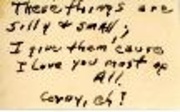 These things are
silly & small,
I give them cause
I love you most of
All.
Corny, eh!